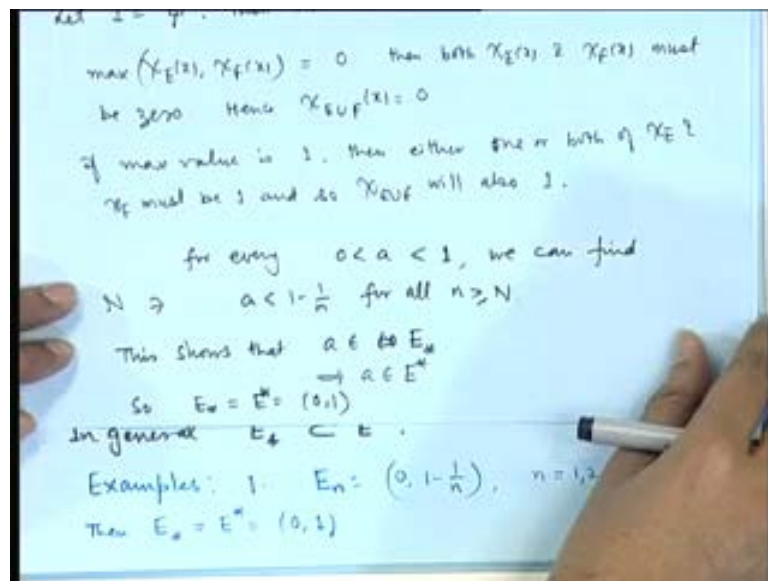 max (χ_E(x), χ_F(x)) = 0 then both χ_E(x) & χ_F(x) must
be zero Hence χ_{E∪F}(x) = 0
if max value is 1. then either one or both of χ_E &
χ_F must be 1 and so χ_{E∪F} will also 1.
for every 0 < a < 1, we can find
N ∋ a < 1 - 1/n for all n ≥ N
This shows that a ∈ E_*
⇒ a ∈ E^*
So E_* = E^* = (0,1)
In general E_* ⊂ E .
Examples: 1. E_n = (0, 1 - 1/n), n = 1,2
Then E_* = E^* = (0, 1)